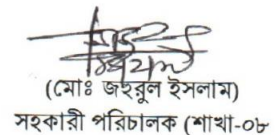 (মোঃ জহুরুল ইসলাম)
সহকারী পরিচালক (শাখা-০৮